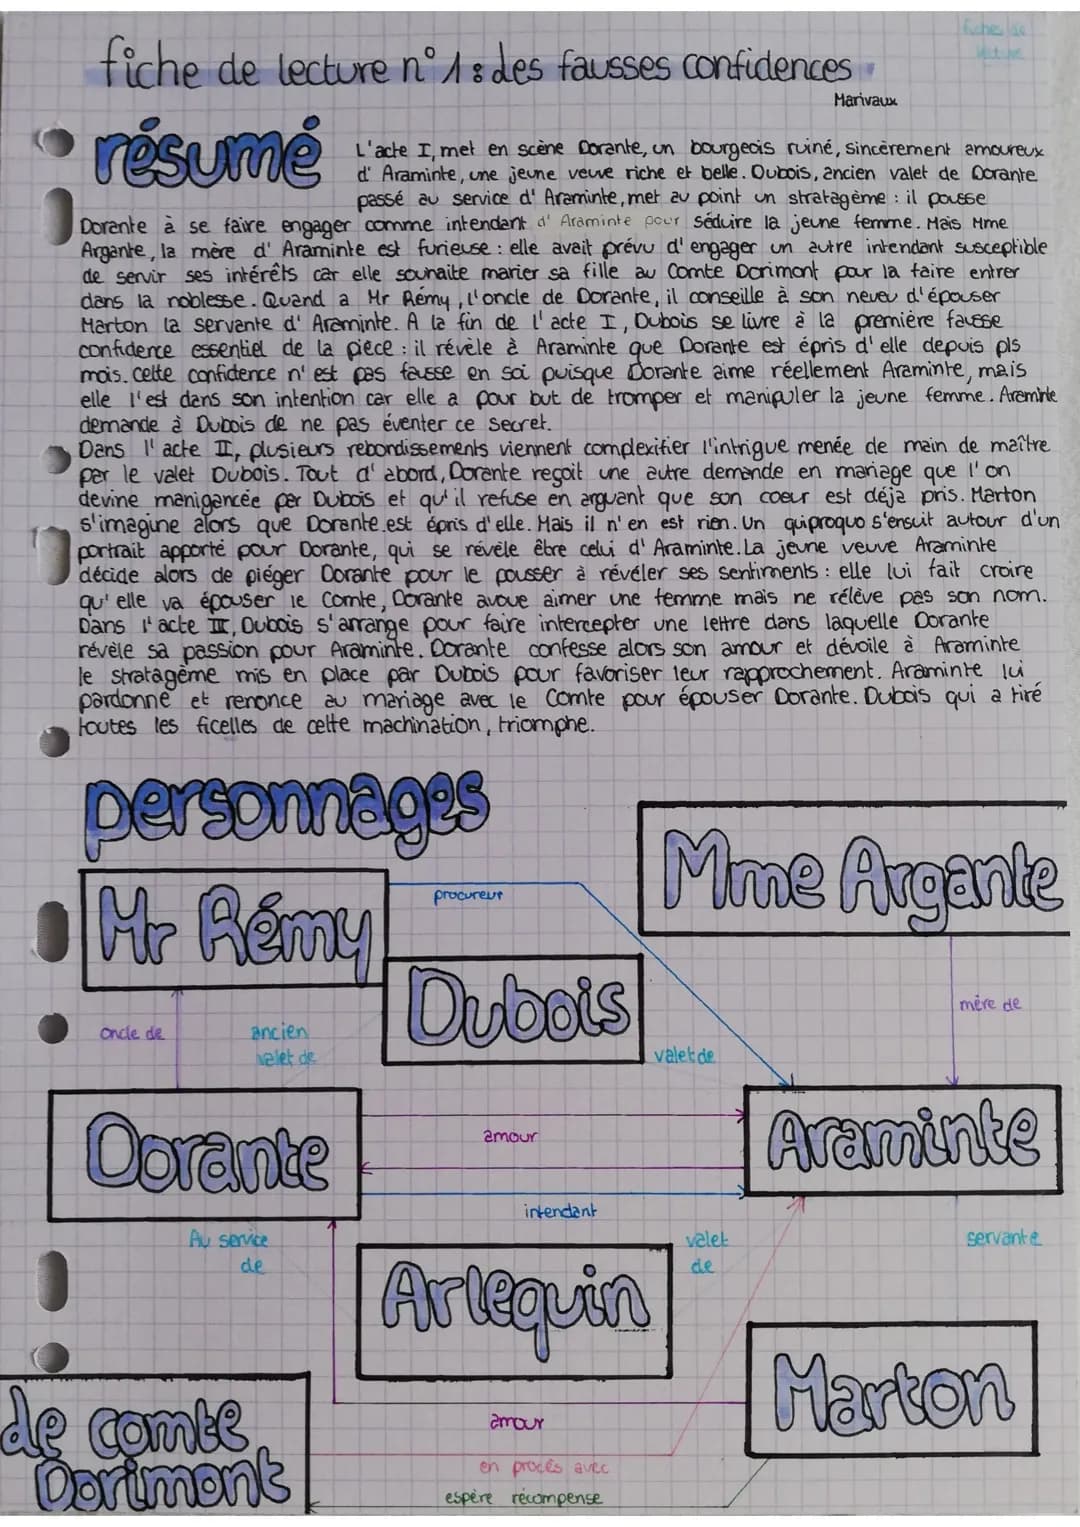 fiches de
lecture
fiche de lecture n°1 : des fausses confidences
Marivaux
résumé
L'acte I, met en scène Dorante, un bourgeois ruiné, sincèrement amoureux
d'Araminte, une jeune veuve riche et belle. Dubois, ancien valet de Dorante
passé au service d'Araminte, met au point un stratagème : il pousse
Dorante à se faire engager comme intendant d'Araminte pour séduire la jeune femme. Mais Mme
Argante, la mère d'Araminte est furieuse : elle avait prévu d'engager un autre intendant susceptible
de servir ses intérêts car elle souhaite marier sa fille au Comte Dorimont pour la faire entrer
dans la noblesse. Quand a Mr Rémy, l'oncle de Dorante, il conseille à son neveu d'épouser
Marton la servante d'Araminte. A la fin de l'acte I, Dubois se livre à la première fausse
confidence essentiel de la pièce : il révèle à Araminte que Dorante est épris d'elle depuis pls
mois. Cette confidence n'est pas fausse en soi puisque Dorante aime réellement Araminte, mais
elle l'est dans son intention car elle a pour but de tromper et manipuler la jeune femme. Araminte
demande à Dubois de ne pas éventer ce secret.
Dans l'acte II, plusieurs rebondissements viennent complexifier l'intrigue menée de main de maître
par le valet Dubois. Tout d'abord, Dorante reçoit une autre demande en mariage que l'on
devine manigancée par Dubois et qu'il refuse en arguant que son coeur est déjà pris. Marton
s'imagine alors que Dorante est épris d'elle. Mais il n'en est rien. Un quiproquo s'ensuit autour d'un
portrait apporté pour Dorante, qui se révèle être celui d'Araminte. La jeune veuve Araminte
décide alors de piéger Dorante pour le pousser à révéler ses sentiments : elle lui fait croire
qu'elle va épouser le Comte, Dorante avoue aimer une femme mais ne rélève pas son nom.
Dans l'acte III, Dubois s'arrange pour faire intercepter une lettre dans laquelle Dorante
révèle sa passion pour Araminte. Dorante confesse alors son amour et dévoile à Araminte
le stratagème mis en place par Dubois pour favoriser leur rapprochement. Araminte lui
pardonne et renonce au mariage avec le Comte pour épouser Dorante. Dubois qui a tiré
toutes les ficelles de cette machination, triomphe.
personnages
Mme Argante
Mr Rémy
procureur
Dubois
mère de
oncle de
ancien
valet de
valet de
Dorante
amour
Araminte
intendant
Au service
de
valet
de
servante
Arlequin
Marton
de comte
Dorimont
amour
en procès avec
espère récompense